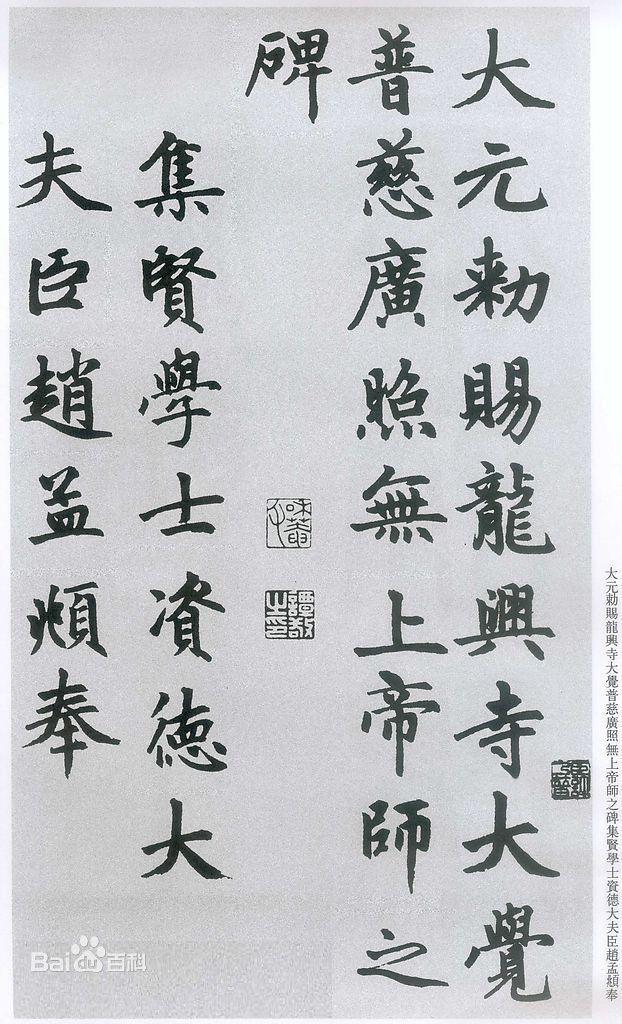 大元勅賜龍興寺大覺
普慈廣照無上帝師之
碑
集賢學士資德大
夫臣趙孟頫奉
譚敬之印
大元勅賜龍興寺大覺普慈廣照無上帝師之碑集賢學士資德大夫臣趙孟頫奉
Bai du 百科